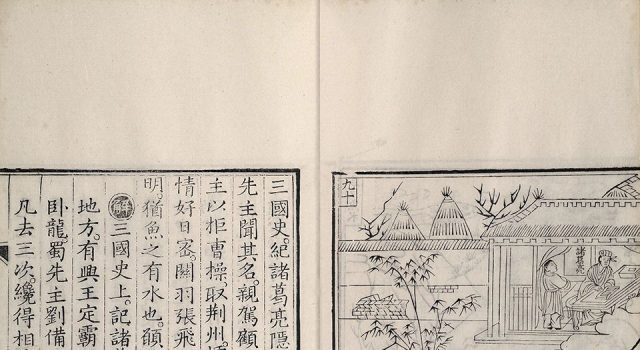 九十
諸葛亮
三國史。紀諸葛亮隱
先主聞其名。親駕顧
主以拒曹操。取荊州。
情好日密。關羽張飛
明。猶魚之有水也。
解 三國史上。記諸
地方。有興王定霸
臥龍。蜀先主劉備
凡去三次。纔得相